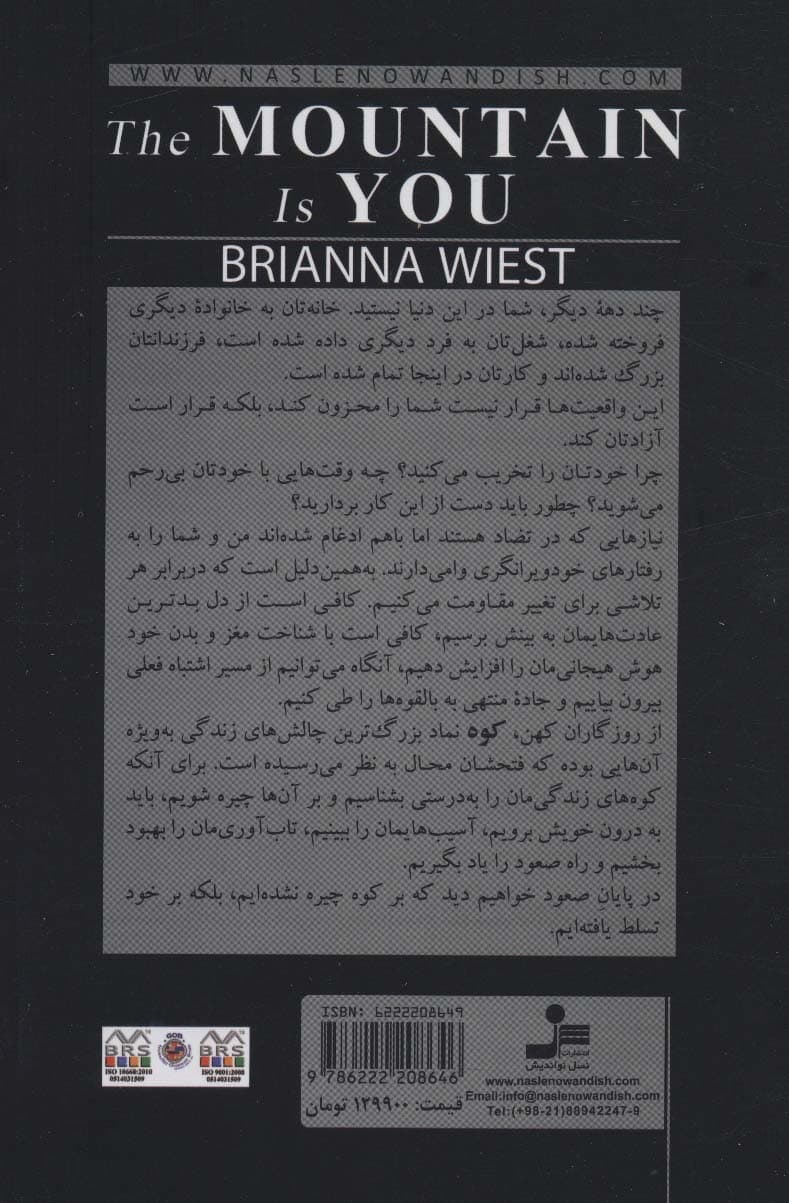 WWW.NASLENOWANDISH.COM
The MOUNTAIN
Is YOU
BRIANNA WIEST
چند دههٔ دیگر، شما در این دنیا نیستید. خانه‌تان به خانوادهٔ دیگری
فروخته شده، شغل‌تان به فرد دیگری داده شده است، فرزندانتان
بزرگ شده‌اند و کارتان در اینجا تمام شده است.
این واقعیت‌ها قرار نیست شما را محزون کند، بلکه قرار است
آزادتان کند.
چرا خودتان را تخریب می‌کنید؟ چه وقت‌هایی با خودتان بی‌رحم
می‌شوید؟ چطور باید دست از این کار بردارید؟
نیازهایی که در تضاد هستند اما باهم ادغام شده‌اند من و شما را به
رفتارهای خودویرانگری وامی‌دارند. به‌همین‌دلیل است که دربرابر هر
تلاشی برای تغییر مقاومت می‌کنیم. کافی است از دل بدترین
عادت‌هایمان به بینش برسیم، کافی است با شناخت مغز و بدن خود
هوش هیجانی‌مان را افزایش دهیم، آنگاه می‌توانیم از مسیر اشتباه فعلی
بیرون بیاییم و جادهٔ منتهی به بالقوه‌ها را طی کنیم.
از روزگاران کهن، کوه نماد بزرگ‌ترین چالش‌های زندگی به‌ویژه
آن‌هایی بوده که فتحشان محال به نظر می‌رسیده است. برای آنکه
کوه‌های زندگی‌مان را به‌درستی بشناسیم و بر آن‌ها چیره شویم، باید
به درون خویش برویم، آسیب‌هایمان را ببینیم، تاب‌آوری‌مان را بهبود
بخشیم و راه صعود را یاد بگیریم.
در پایان صعود خواهیم دید که بر کوه چیره نشده‌ایم، بلکه بر خود
تسلط یافته‌ایم.
BRS
ISO 10668:2010
0514031509
GOB
BRS
ISO 9001:2008
0514031509
ISBN: 6222208649
9 786222 208646
قیمت: ۱۲۹۹۰۰ تومان
انتشارات
نسل نواندیش
www.naslenowandish.com
Email:info@naslenowandish.com
Tel:(+98-21)88942247-9